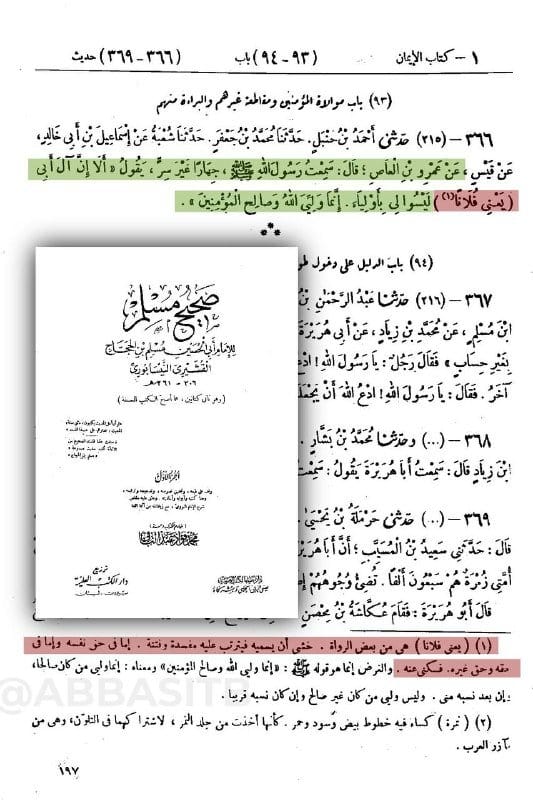 ١ - كتاب الإيمان
(٩٣-٩٤) باب
(٣٦٦-٣٦٩) حديث
(٩٣) باب موالاة المؤمنين ومقاطعة غيرهم والبراءة منهم
٣٦٦ – (٢١٥) حَدَّثَنِي أَحْمَدُ بْنُ حَنْبَلٍ. حَدَّثَنَا مُحَمَّدُ بْنُ جَعْفَرٍ. حَدَّثَنَا شُعْبَةُ عَنْ إِسْمَاعِيلَ بْنِ أَبِي خَالِدٍ،
عَنْ قَيْسٍ، عَنْ عَمْرِو بْنِ الْعَاصِ؛ قَالَ: سَمِعْتُ رَسُولَ اللهِ ﷺ، جِهَارًا غَيْرَ سِرٍّ، يَقُولُ «أَلَا إِنَّ آلَ أَبِي
(يَعْنِي فُلَانًا (١)) لَيْسُوا لِي بِأَوْلِيَاءَ. إِنَّمَا وَلِيِّيَ اللهُ وَصَالِحُ الْمُؤْمِنِينَ».
(٩٤) باب الدليل على دخول
٣٦٧ – (٢١٦) حَدَّثَنَا عَبْدُ الرَّحْمَٰنِ
ابْنُ مُسْلِمٍ، عَنْ مُحَمَّدِ بْنِ زِيَادٍ، عَنْ أَبِي هُرَيْرَةَ
بِغَيْرِ حِسَابٍ» فَقَالَ رَجُلٌ: يَا رَسُولَ اللهِ!
آخَرُ. فَقَالَ: يَا رَسُولَ اللهِ! ادْعُ اللهَ أَنْ
٣٦٨ – (...) وحَدَّثَنَا مُحَمَّدُ بْنُ بَشَّارٍ.
ابْنَ زِيَادٍ قَالَ: سَمِعْتُ أَبَا هُرَيْرَةَ يَقُولُ:
٣٦٩ – (...) حَدَّثَنِي حَرْمَلَةُ بْنُ يَحْيَى
قَالَ: حَدَّثَنِي سَعِيدُ بْنُ الْمُسَيَّبِ؛ أَنَّ أَبَا هُرَيْرَةَ
أُمَّتِي زُمْرَةٌ هُمْ سَبْعُونَ أَلْفًا. تُضِيءُ وُجُوهُهُمْ
قَالَ أَبُو هُرَيْرَةَ: فَقَامَ عُكَّاشَةُ بْنُ مِحْصَنٍ
صَحِيحُ مُسْلِمٍ
للإمام أبي الحسين مسلم بن الحجاج
القشيري النيسابوري
٢٠٦ - ٢٦١ هـ
الجزء الأول
محمد فؤاد عبد الباقي
توزيع
دار الكتب العلمية
بيروت - لبنان
(١) (يعني فلانا) هي من بعض الرواة. خشى أن يسميه فيترتب عليه مفسدة وفتنة. إما في حق نفسه وإما في
حقه وحق غيره. فكنى عنه. والغرض إنما هو قوله ﷺ: «إنما وليي الله وصالح المؤمنين» ومعناه: إنما وليي من كان صالحا،
وإن بعد نسبه منى. وليس وليي من كان غير صالح وإن كان نسبه قريبا.
(٢) (نمرة) كساء فيه خطوط بيض وسود وحمر. كأنها أخذت من جلد النمر، لاشتراكهما في التلون، وهي من
مآزر العرب.
١٩٧
@ABBASITD